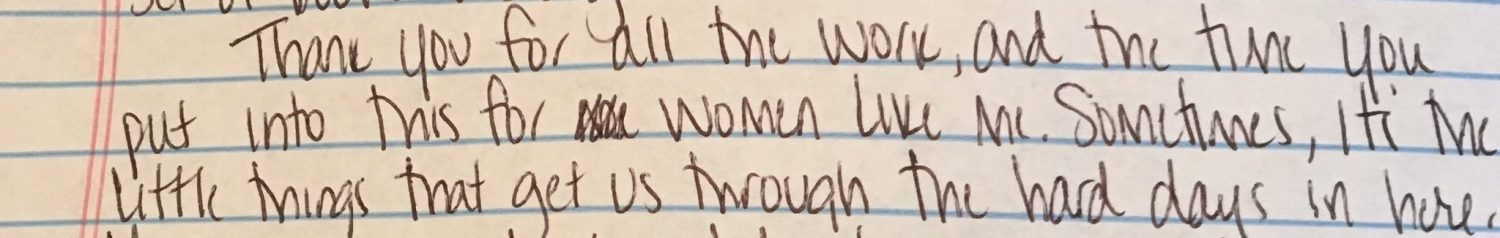 Thank you for all the work, and the time you
put into this for women like me. Sometimes, it's the
little things that get us through the hard days in here.